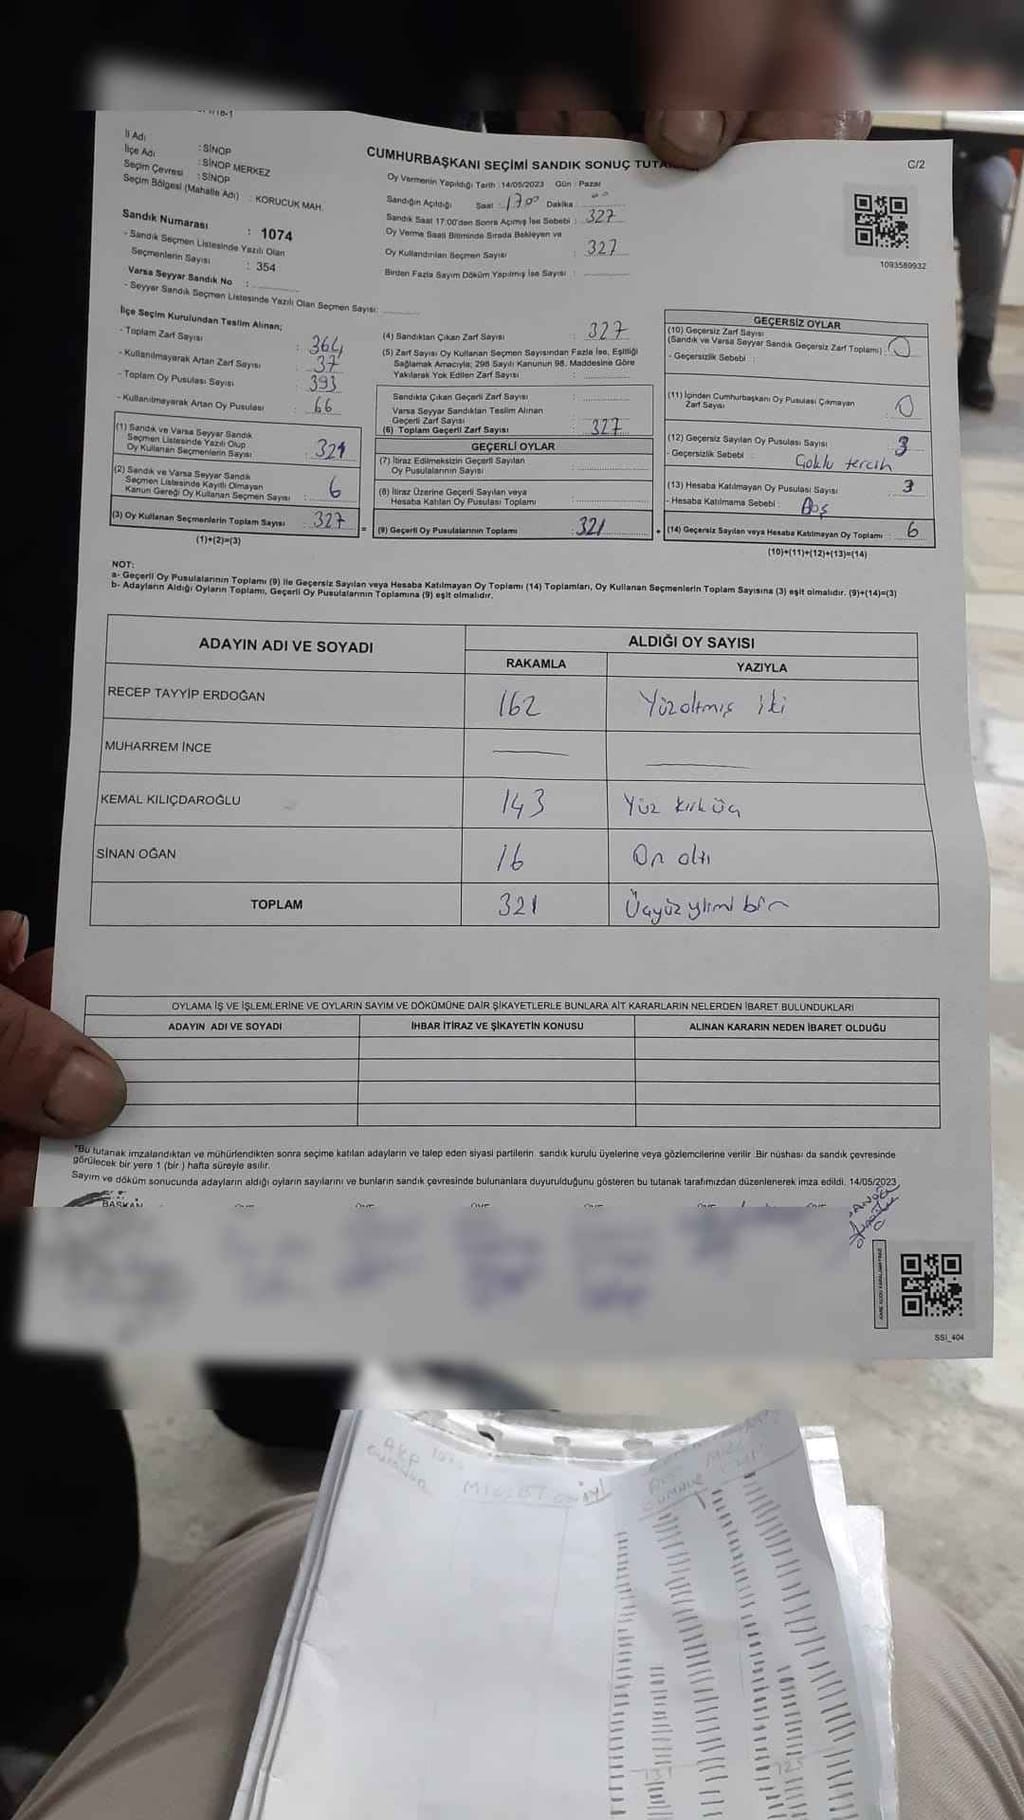 İl Adı : SİNOP
İlçe Adı : SİNOP MERKEZ
Seçim Çevresi : SİNOP
Seçim Bölgesi (Mahalle Adı) : KORUCUK MAH.
Sandık Numarası : 1074
- Sandık Seçmen Listesinde Yazılı Olan
Seçmenlerin Sayısı : 354
Varsa Seyyar Sandık No :
- Seyyar Sandık Seçmen Listesinde Yazılı Olan Seçmen Sayısı:
CUMHURBAŞKANI SEÇİMİ SANDIK SONUÇ
Oy Vermenin Yapıldığı Tarih : 14/05/2023 Gün : Pazar
Sandığın Açıldığı Saat : 17 00 Dakika 00
Sandık Saat 17:00'den Sonra Açımış İse Sebebi : 327
Oy Verme Saati Bitiminde Sırada Bekleyen ve
Oy Kullandırılan Seçmen Sayısı : 327
Birden Fazla Sayım Döküm Yapılmış İse Sayısı :
C/2
1093589932
İlçe Seçim Kurulundan Teslim Alınan;
- Toplam Zarf Sayısı : 364
- Kullanılmayarak Artan Zarf Sayısı : 37
- Toplam Oy Pusulası Sayısı : 393
- Kullanılmayarak Artan Oy Pusulası : 66
(1) Sandık ve Varsa Seyyar Sandık
Seçmen Listesinde Yazılı Olup
Oy Kullanan Seçmenlerin Sayısı : 321
(2) Sandık ve Varsa Seyyar Sandık
Seçmen Listesinde Kayıtlı Olmayan
Kanun Gereği Oy Kullanan Seçmen Sayısı : 6
(3) Oy Kullanan Seçmenlerin Toplam Sayısı : 327
(1)+(2)=(3)
(4) Sandıktan Çıkan Zarf Sayısı : 327
(5) Zarf Sayısı Oy Kullanan Seçmen Sayısından Fazla İse, Eşitliği
Sağlamak Amacıyla; 298 Sayılı Kanunun 98. Maddesine Göre
Yakılarak Yok Edilen Zarf Sayısı :
Sandıkta Çıkan Geçerli Zarf Sayısı :
Varsa Seyyar Sandıktan Teslim Alınan
Geçerli Zarf Sayısı :
(6) Toplam Geçerli Zarf Sayısı : 327
GEÇERLİ OYLAR
(7) İtiraz Edilmeksizin Geçerli Sayılan
Oy Pusulalarının Sayısı :
(8) İtiraz Üzerine Geçerli Sayılan veya
Hesaba Katılan Oy Pusulası Toplamı :
= (9) Geçerli Oy Pusulalarının Toplamı : 321
GEÇERSİZ OYLAR
(10) Geçersiz Zarf Sayısı
(Sandık ve Varsa Seyyar Sandık Geçersiz Zarf Toplamı) : 0
- Geçersizlik Sebebi :
(11) İçinden Cumhurbaşkanı Oy Pusulası Çıkmayan
Zarf Sayısı : 0
(12) Geçersiz Sayılan Oy Pusulası Sayısı : 3
- Geçersizlik Sebebi : Çoklu tercih
(13) Hesaba Katılmayan Oy Pusulası Sayısı : 3
- Hesaba Katılmama Sebebi : Boş
+ (14) Geçersiz Sayılan veya Hesaba Katılmayan Oy Toplamı : 6
(10)+(11)+(12)+(13)=(14)
NOT:
a- Geçerli Oy Pusulalarının Toplamı (9) ile Geçersiz Sayılan veya Hesaba Katılmayan Oy Toplamı (14) Toplamları, Oy Kullanan Seçmenlerin Toplam Sayısına (3) eşit olmalıdır. (9)+(14)=(3)
b- Adayların Aldığı Oyların Toplamı, Geçerli Oy Pusulalarının Toplamına (9) eşit olmalıdır.
ADAYIN ADI VE SOYADI ALDIĞI OY SAYISI
RAKAMLA YAZIYLA
RECEP TAYYİP ERDOĞAN 162 Yüzaltmış iki
MUHARREM İNCE
KEMAL KILIÇDAROĞLU 143 Yüz kırküç
SİNAN OĞAN 16 On altı
TOPLAM 321 Üçyüz yirmi bir
OYLAMA İŞ VE İŞLEMLERİNE VE OYLARIN SAYIM VE DÖKÜMÜNE DAİR ŞİKAYETLERLE BUNLARA AİT KARARLARIN NELERDEN İBARET BULUNDUKLARI
ADAYIN ADI VE SOYADI İHBAR İTİRAZ VE ŞİKAYETİN KONUSU ALINAN KARARIN NEDEN İBARET OLDUĞU
*Bu tutanak imzalandıktan ve mühürlendikten sonra seçime katılan adayların ve talep eden siyasi partilerin sandık kurulu üyelerine veya gözlemcilerine verilir. Bir nüshası da sandık çevresinde
görülecek bir yere 1 (bir ) hafta süreyle asılır.
Sayım ve döküm sonucunda adayların aldığı oyların sayılarını ve bunların sandık çevresinde bulunanlara duyurulduğunu gösteren bu tutanak tarafımızdan düzenlenerek imza edildi. 14/05/2023
BAŞKAN
SSİ_404